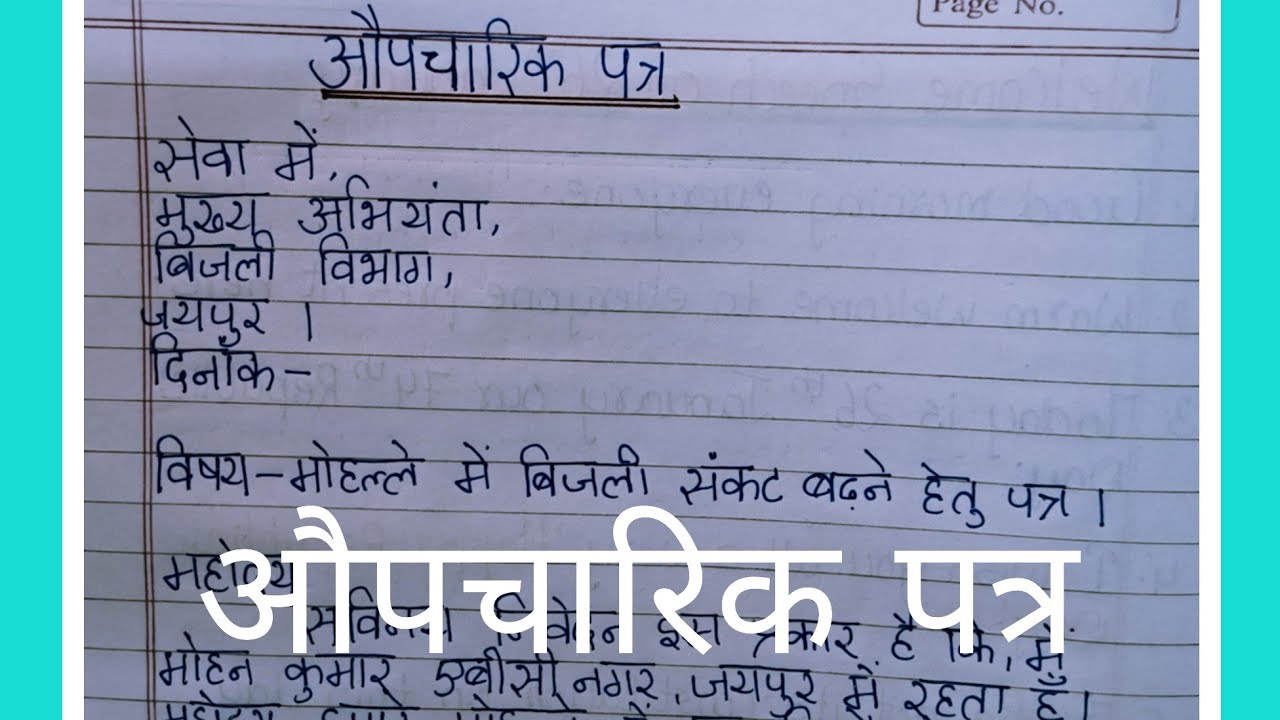 Page No.
औपचारिक पत्र
सेवा में,
मुख्य अभियंता,
बिजली विभाग,
जयपुर ।
दिनाँक-
विषय-मोहल्ले में बिजली संकट बढ़ने हेतु पत्र ।
औपचारिक पत्र
महोदय
सविनय निवेदन इस प्रकार है कि, मैं
मोहन कुमार एबीसी नगर, जयपुर में रहता हूँ।